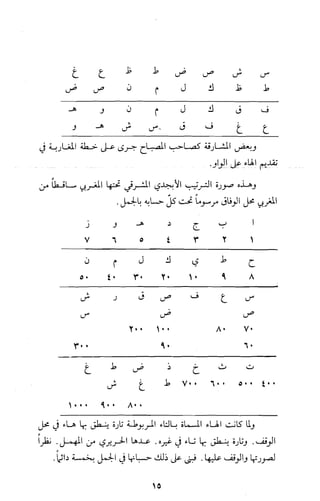 س ش ص ض ط ظ ع غ
ط ظ ك ل م ن ص ض
ف ق ك ل م ن و هـ
ع غ ف ق س ش هـ و
وبعض المشارقة كصاحب المصباح جرى على خطة المغاربة في
تقديم الهاء على الواو.
وهذه صورة الترتيب الأبجدي المشرقي تحتها المغربي ساقطاً من
المغربي محل الوفاق مرسوماً تحت كلٍّ حسابه بالجمل.
ا ب ج د هـ و ز
١ ٢ ٣ ٤ ٥ ٦ ٧
ح ط ي ك ل م ن
٨ ٩ ١٠ ٢٠ ٣٠ ٤٠ ٥٠
س ع ف ص ق ر ش
ص ض س
٧٠ ٨٠ ١٠٠ ٢٠٠
٦٠ ٩٠ ٣٠٠
ت ث خ ذ ض ظ غ
٤٠٠ ٥٠٠ ٦٠٠ ٧٠٠ ظ غ ش
٨٠٠ ٩٠٠ ١٠٠٠
ولما كانت الهاء المسماة بالتاء المربوطة تارة ينطق بها هاء في محل
الوقف. وتارة ينطق بها تاء في غيره. عدها الحريري من المهمل. نظراً
لصورتها والوقف عليها. فبنى على ذلك حسابها في الجمل بخمسة دائماً.
١٥